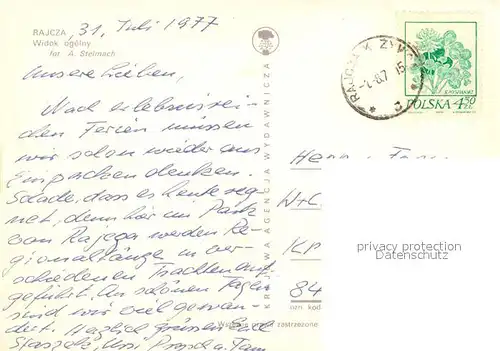 RAJCZA 31. Juli 1977
Widok ogólny
fot. A. Stelmach
Unsere Lieben,
Nach erlebnisrei-
den Ferien müssen
wir schon wieder ans
Einpacken denken.
Schade, dass es heute reg-
net, denn hier im Park
von Rajcza werden Re-
gionaltänze in ver-
schiedenen Trachten auf-
geführt. An schönen Tagen
sind wir viel gewan-
dert. Herzlich grüssen Euch
KRAJOWA AGENCJA WYDAWNICZA
RAJCZA K. ŻYWCA
-1.-8.7 15
POLSKA 4,50 ZŁ
Herrn
W+C
KP
84
privacy protection
Datenschutz